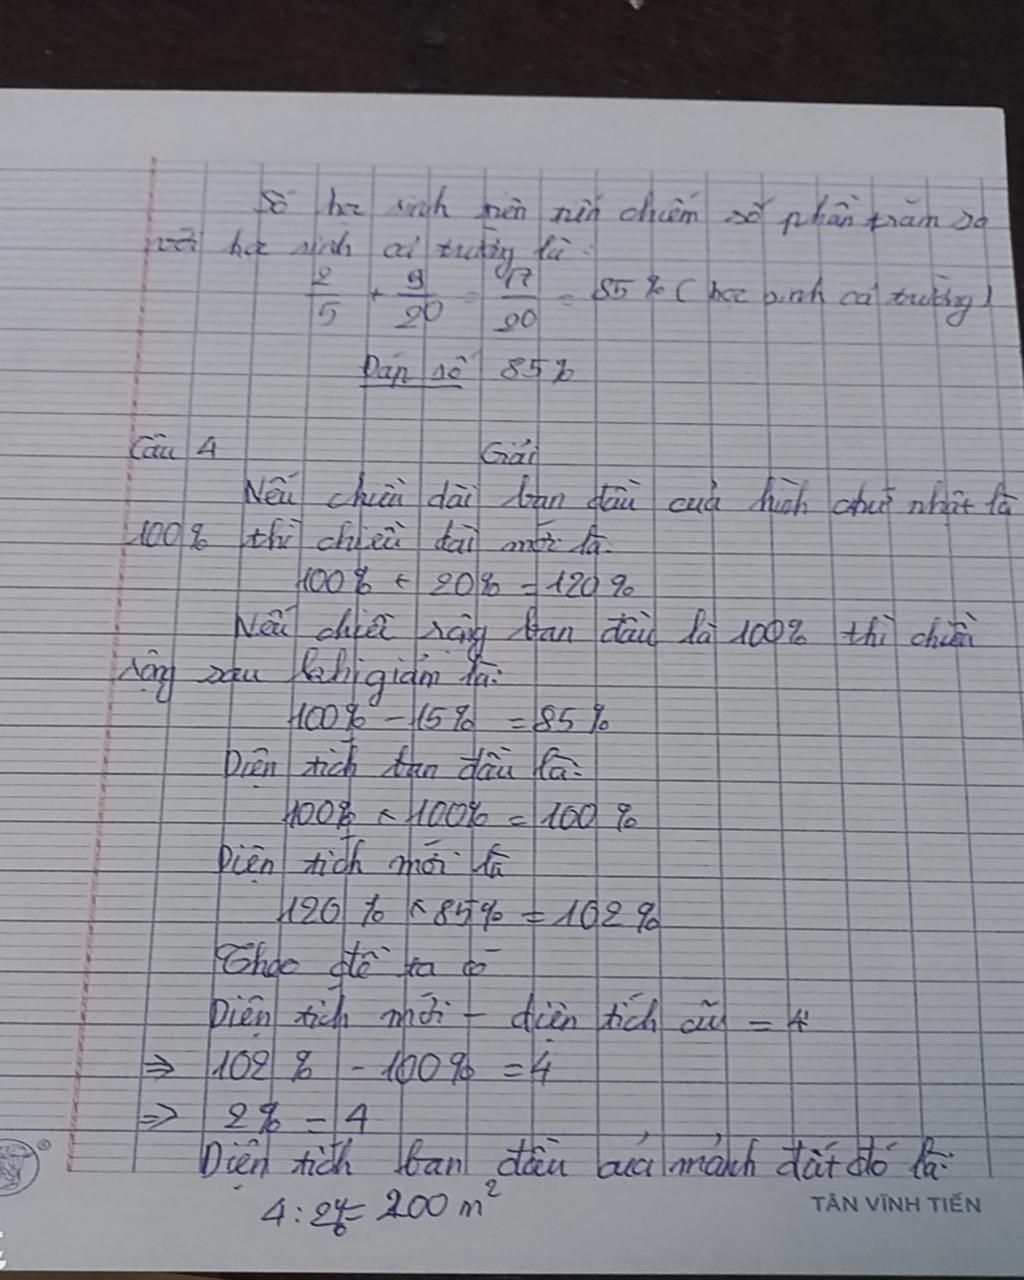 Số học sinh nên nín chiếm số phần trăm so
với học sinh cả trường là:
2/5 + 9/20 = 17/20 = 85% (học sinh cả trường)
Đáp số 85%
Câu 4 Giải
Nếu chiều dài ban đầu của hình chữ nhật là
100% thì chiều dài mới là:
100% + 20% = 120%
Nếu chiều rộng ban đầu là 100% thì chiều
rộng sau khi giảm là:
100% - 15% = 85%
Diện tích ban đầu là:
100% × 100% = 100%
Diện tích mới là
120% × 85% = 102%
Theo đề ta có
Diện tích mới - diện tích cũ = 4
⇒ 102% - 100% = 4
⇒ 2% = 4
Diện tích ban đầu của mảnh đất đó là:
4 : 2% = 200 m²
TÂN VĨNH TIẾN